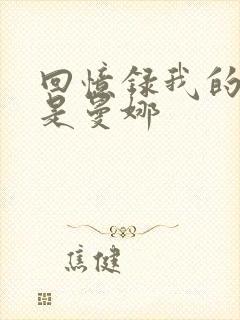 回憶錄我的
是曼娜
焦健